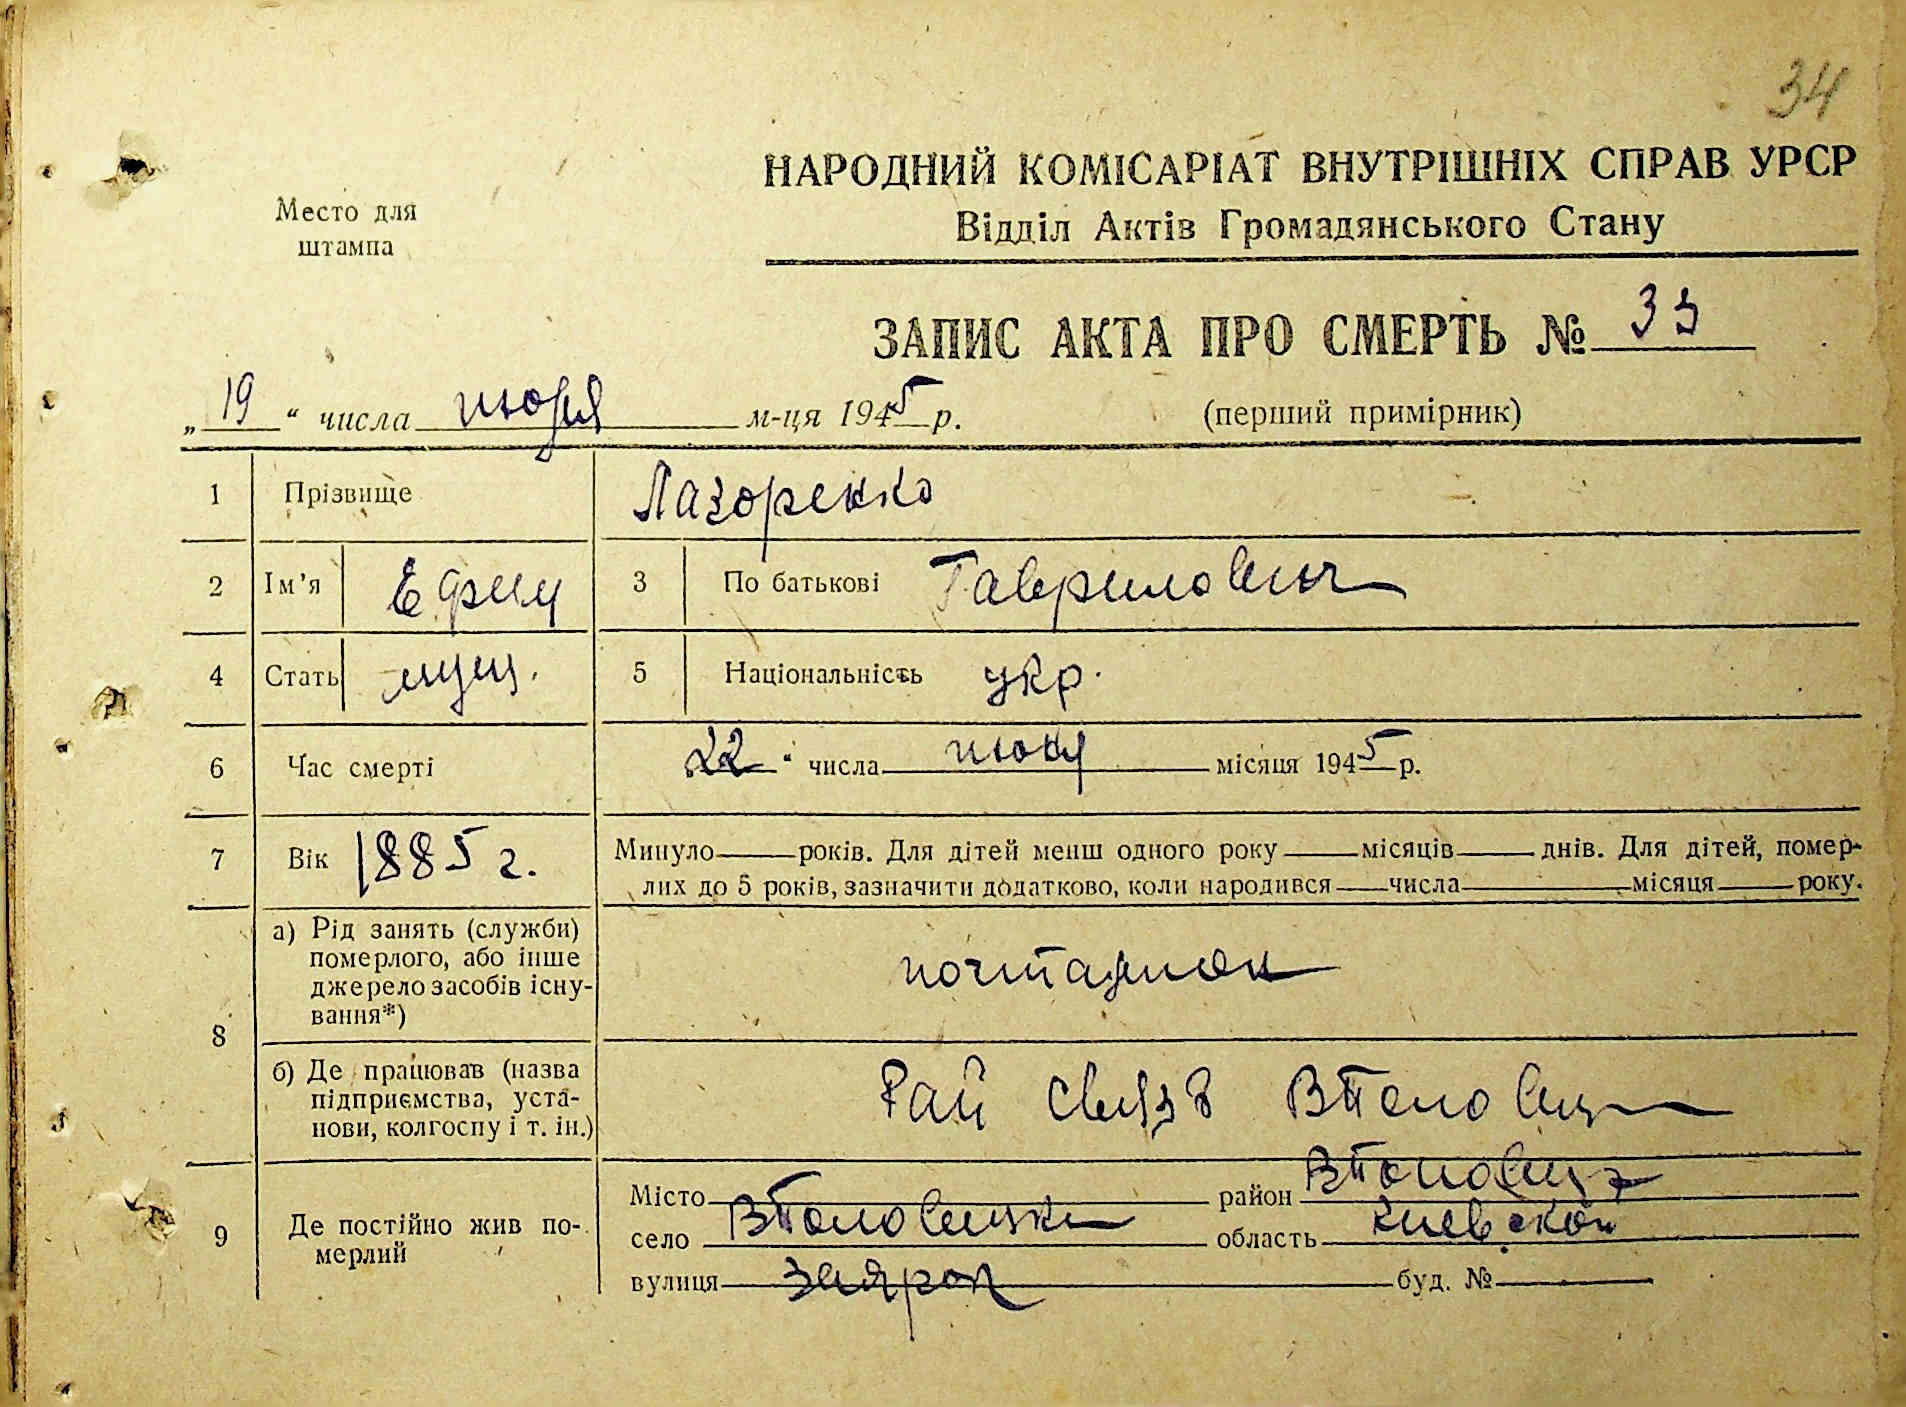 34
НАРОДНИЙ КОМІСАРІАТ ВНУТРІШНІХ СПРАВ УРСР
Відділ Актів Громадянського Стану
Место для
штампа
ЗАПИС АКТА ПРО СМЕРТЬ № 33
„ 19 “ числа июля м-ця 1945 р. (перший примірник)
1 Прізвище Лазоренко
2 Ім’я Ефим 3 По батькові Гаврилович
4 Стать муж. 5 Національність укр.
6 Час смерті 22 “ числа июня місяця 1945 р.
7 Вік 1885 г. Минуло років. Для дітей менш одного року місяців днів. Для дітей, помер-
лих до 5 років, зазначити додатково, коли народився числа місяця року.
8 а) Рід занять (служби)
померлого, або інше
джерело засобів існу-
вання*)
почтальон
б) Де працював (назва
підприємства, уста-
нови, колгоспу і т. ін.)
Рай связь
9 Де постійно жив по-
мерлий
Місто район
село область Киевской
вулиця буд. №